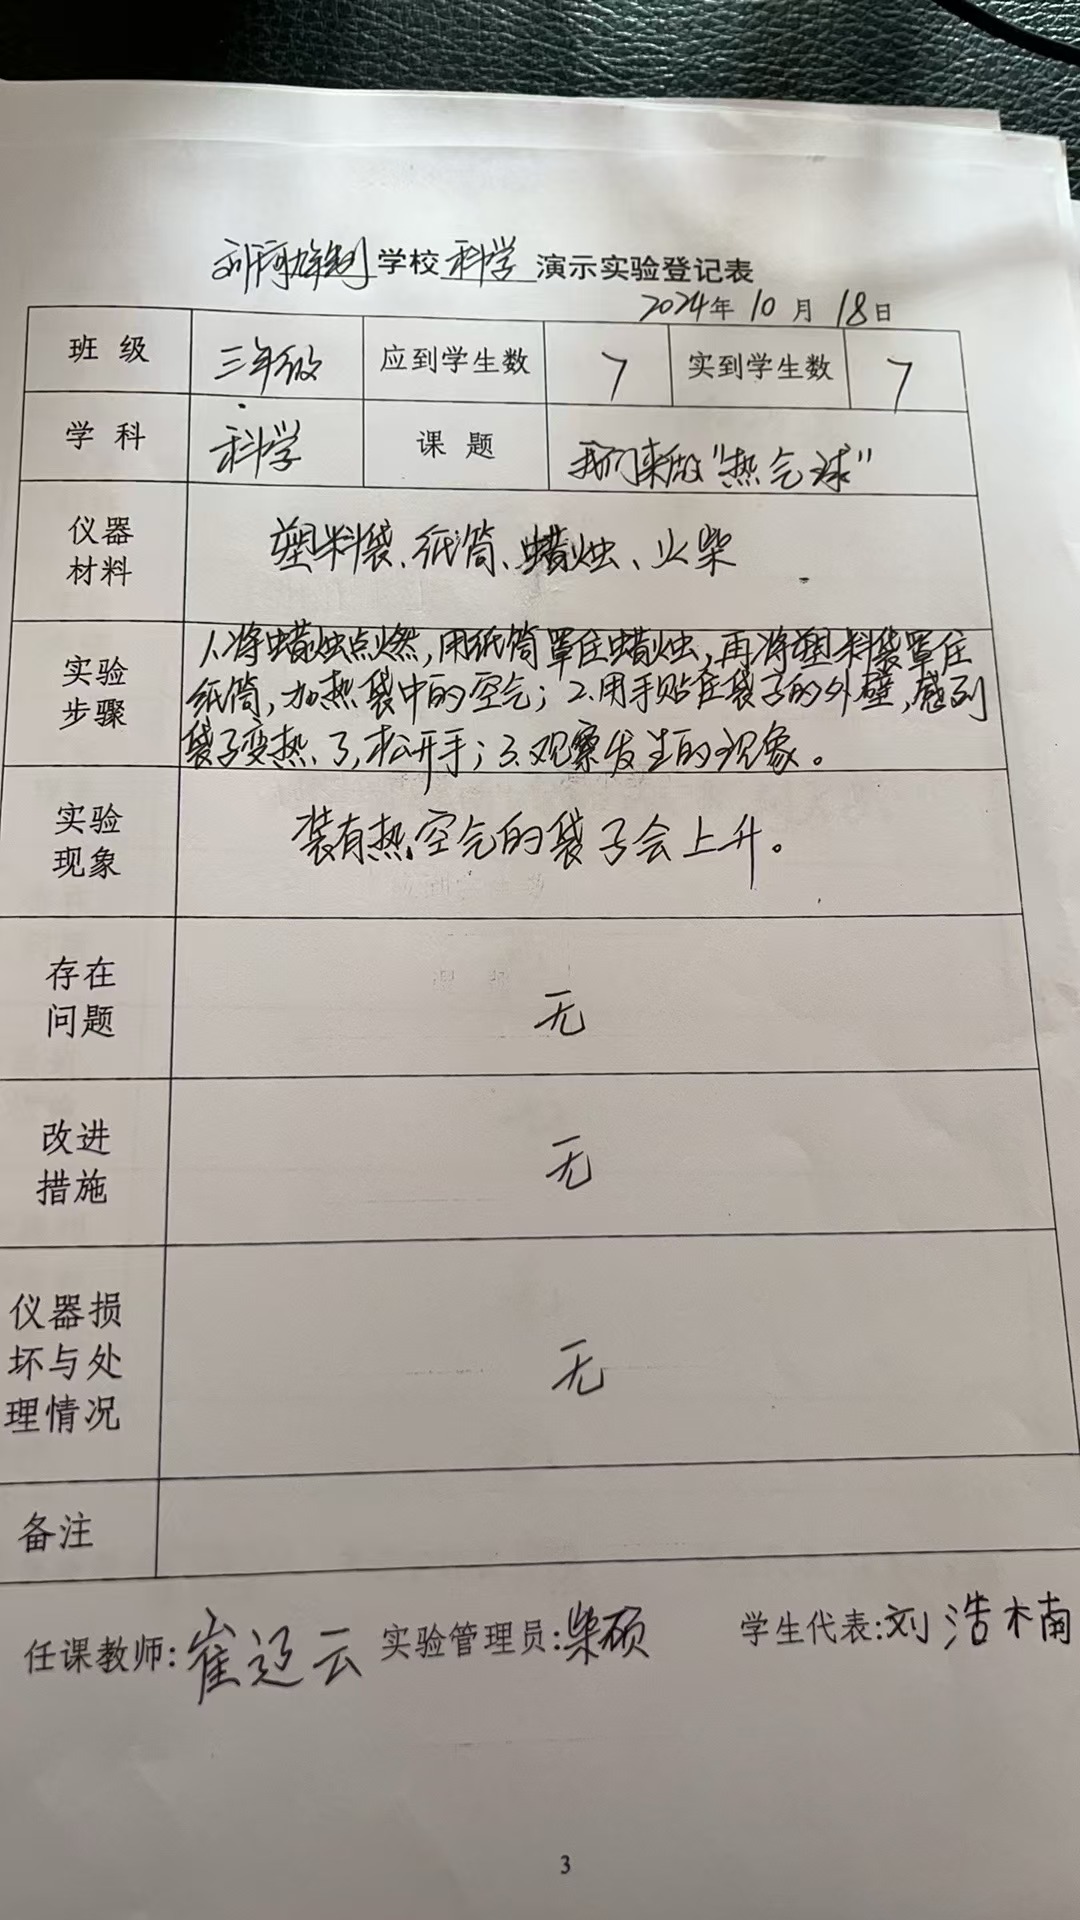 学校 科学 演示实验登记表
2024年 10 月 18 日
班 级 三年级 应到学生数 7 实到学生数 7
学 科 科学 课 题 我们来做“热气球”
仪器
材料
塑料袋、纸筒、蜡烛、火柴
实验
步骤
1.将蜡烛点燃,用纸筒罩住蜡烛,再将塑料袋罩住
纸筒,加热袋中的空气;2.用手贴在袋子的外壁,感到
袋子变热了,松开手;3.观察发生的现象。
实验
现象
装有热空气的袋子会上升。
存在
问题
无
改进
措施
无
仪器损
坏与处
理情况
无
备注
任课教师:崔迎云 实验管理员:柴硕 学生代表:刘浩楠
3